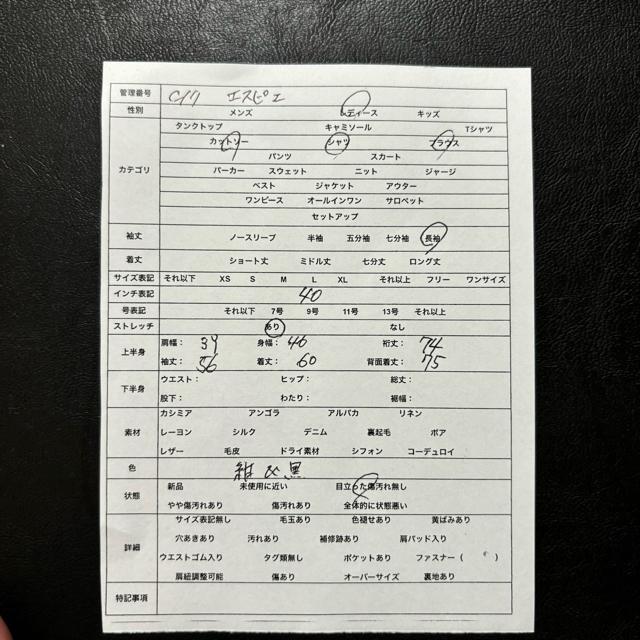 管理番号 C17 エスピエ
性別 メンズ レディース キッズ
タンクトップ キャミソール Tシャツ
カットソー シャツ ブラウス
パンツ スカート
カテゴリ パーカー スウェット ニット ジャージ
ベスト ジャケット アウター
ワンピース オールインワン サロペット
セットアップ
袖丈 ノースリーブ 半袖 五分袖 七分袖 長袖
着丈 ショート丈 ミドル丈 七分丈 ロング丈
サイズ表記 それ以下 XS S M L XL それ以上 フリー ワンサイズ
インチ表記 40
号表記 それ以下 7号 9号 11号 13号 それ以上
ストレッチ あり なし
上半身 肩幅： 39 身幅： 46 裄丈： 74
袖丈： 56 着丈： 60 背面着丈： 75
下半身 ウエスト： ヒップ： 総丈：
股下： わたり： 裾幅：
カシミア アンゴラ アルパカ リネン
素材 レーヨン シルク デニム 裏起毛 ボア
レザー 毛皮 ドライ素材 シフォン コーデュロイ
色 紺 & 黒
状態 新品 未使用に近い 目立った傷汚れ無し
やや傷汚れあり 傷汚れあり 全体的に状態悪い
サイズ表記無し 毛玉あり 色褪せあり 黄ばみあり
詳細 穴あきあり 汚れあり 補修跡あり 肩パッド入り
ウエストゴム入り タグ類無し ポケットあり ファスナー（ ）
肩紐調整可能 傷あり オーバーサイズ 裏地あり
特記事項